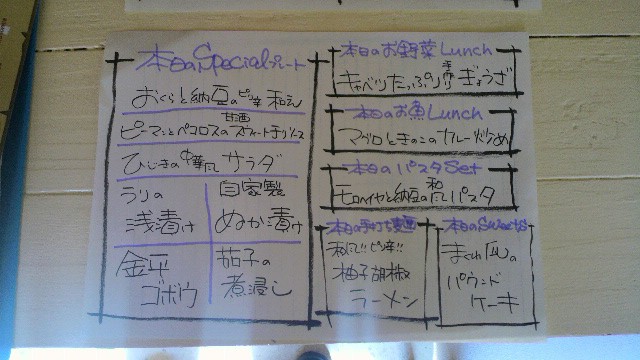 本日のSpecialプレート
おくらと納豆のピリ辛和え
ピーマンとペコロスの甘酒スウィートチリソース
ひじきの中華風サラダ
うりの
浅漬け
自家製
ぬか漬け
金平
ゴボウ
茄子の
煮浸し
本日のお野菜Lunch
キャベツたっぷり手作りぎょうざ
本日のお魚Lunch
マグロときのこのカレー炒め
本日のパスタSet
モロヘイヤと納豆の和風パスタ
本日の手打ち麺
和風!!ピリ辛!!
柚子胡椒
ラーメン
本日のSweets
風の
パウンド
ケーキ